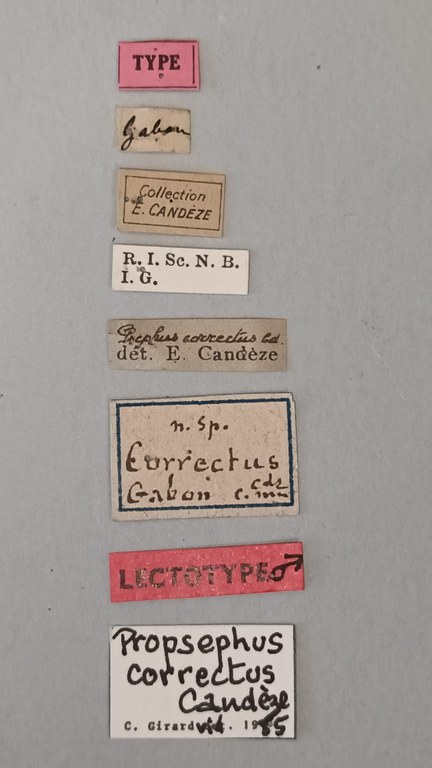 TYPE
Gabon
Collection
E. CANDÈZE
R. I. Sc. N. B.
I. G.
correctus Cd.
det. E. Candèze
n. sp.
Correctus
Gabon cdz
c. mm
LECTOTYPE ♂
Propsephus
correctus
Candèze
C. Girard vid. 1985